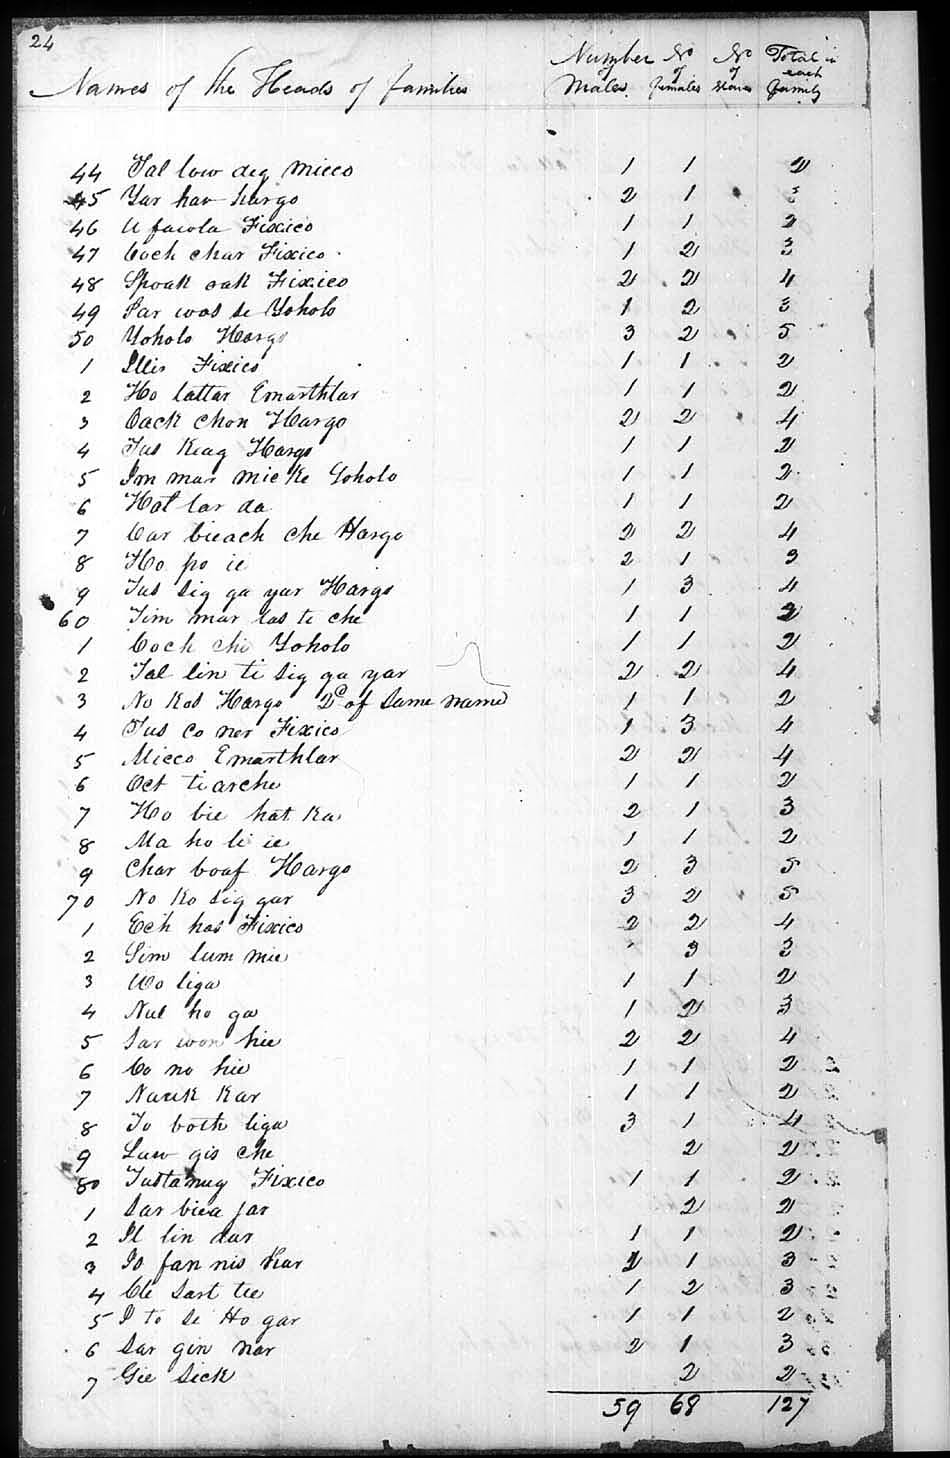 24
Names of the Heads of families Number of Males No of females No of slaves Total in each family
44 Tal low deg micco 1 1 2
45 Yar har hargo 2 1 3
46 U facola Fixico 1 1 2
47 Coch char Fixico 1 2 3
48 Spoak oak Fixico 2 2 4
49 Par wos se Yoholo 1 2 3
50 Yoholo Hargo 3 2 5
1 Illis Fixico 1 1 2
2 Ho lattar Emarthlar 1 1 2
3 Cack chon Hargo 2 2 4
4 Tus Keag Hargo 1 1 2
5 Im mar mic Ke Yoholo 1 1 2
6 Hot lar da 1 1 2
7 Car bieach che Hargo 2 2 4
8 Ho po ie 2 1 3
9 Tus sig ga yar Hargo 1 3 4
60 Tim mar las te che 1 1 2
1 Coch che Yoholo 1 1 2
2 Tal lin ti sig ga yar 2 2 4
3 No Kos Hargo 2d of same name 1 1 2
4 Tus Co ner Fixico 1 3 4
5 Micco Emarthlar 2 2 4
6 Oct tiarche 1 1 2
7 Ho bie hat Ka 2 1 3
8 Ma ho le ie 1 1 2
9 Char boaf Hargo 2 3 5
70 No Ko sig gar 3 2 5
1 Ech has Fixico 2 2 4
2 Sim lum mie 3 3
3 Wo liga 1 1 2
4 Nul ho ga 1 2 3
5 Sar won hie 2 2 4
6 Co no hie 1 1 2
7 Nauk Kar 1 1 2
8 To both liga 3 1 4
9 Luw gis che 2 2
80 Tustanug Fixico 1 1 2
1 Sar biea jar 2 2
2 Il lin dar 1 1 2
3 Is fan nis Kar 2 1 3
4 Cle Sart tee 1 2 3
5 I to se Ho gar 1 1 2
6 Sar gin nar 2 1 3
7 Gie Sick 2 2
59 68 127